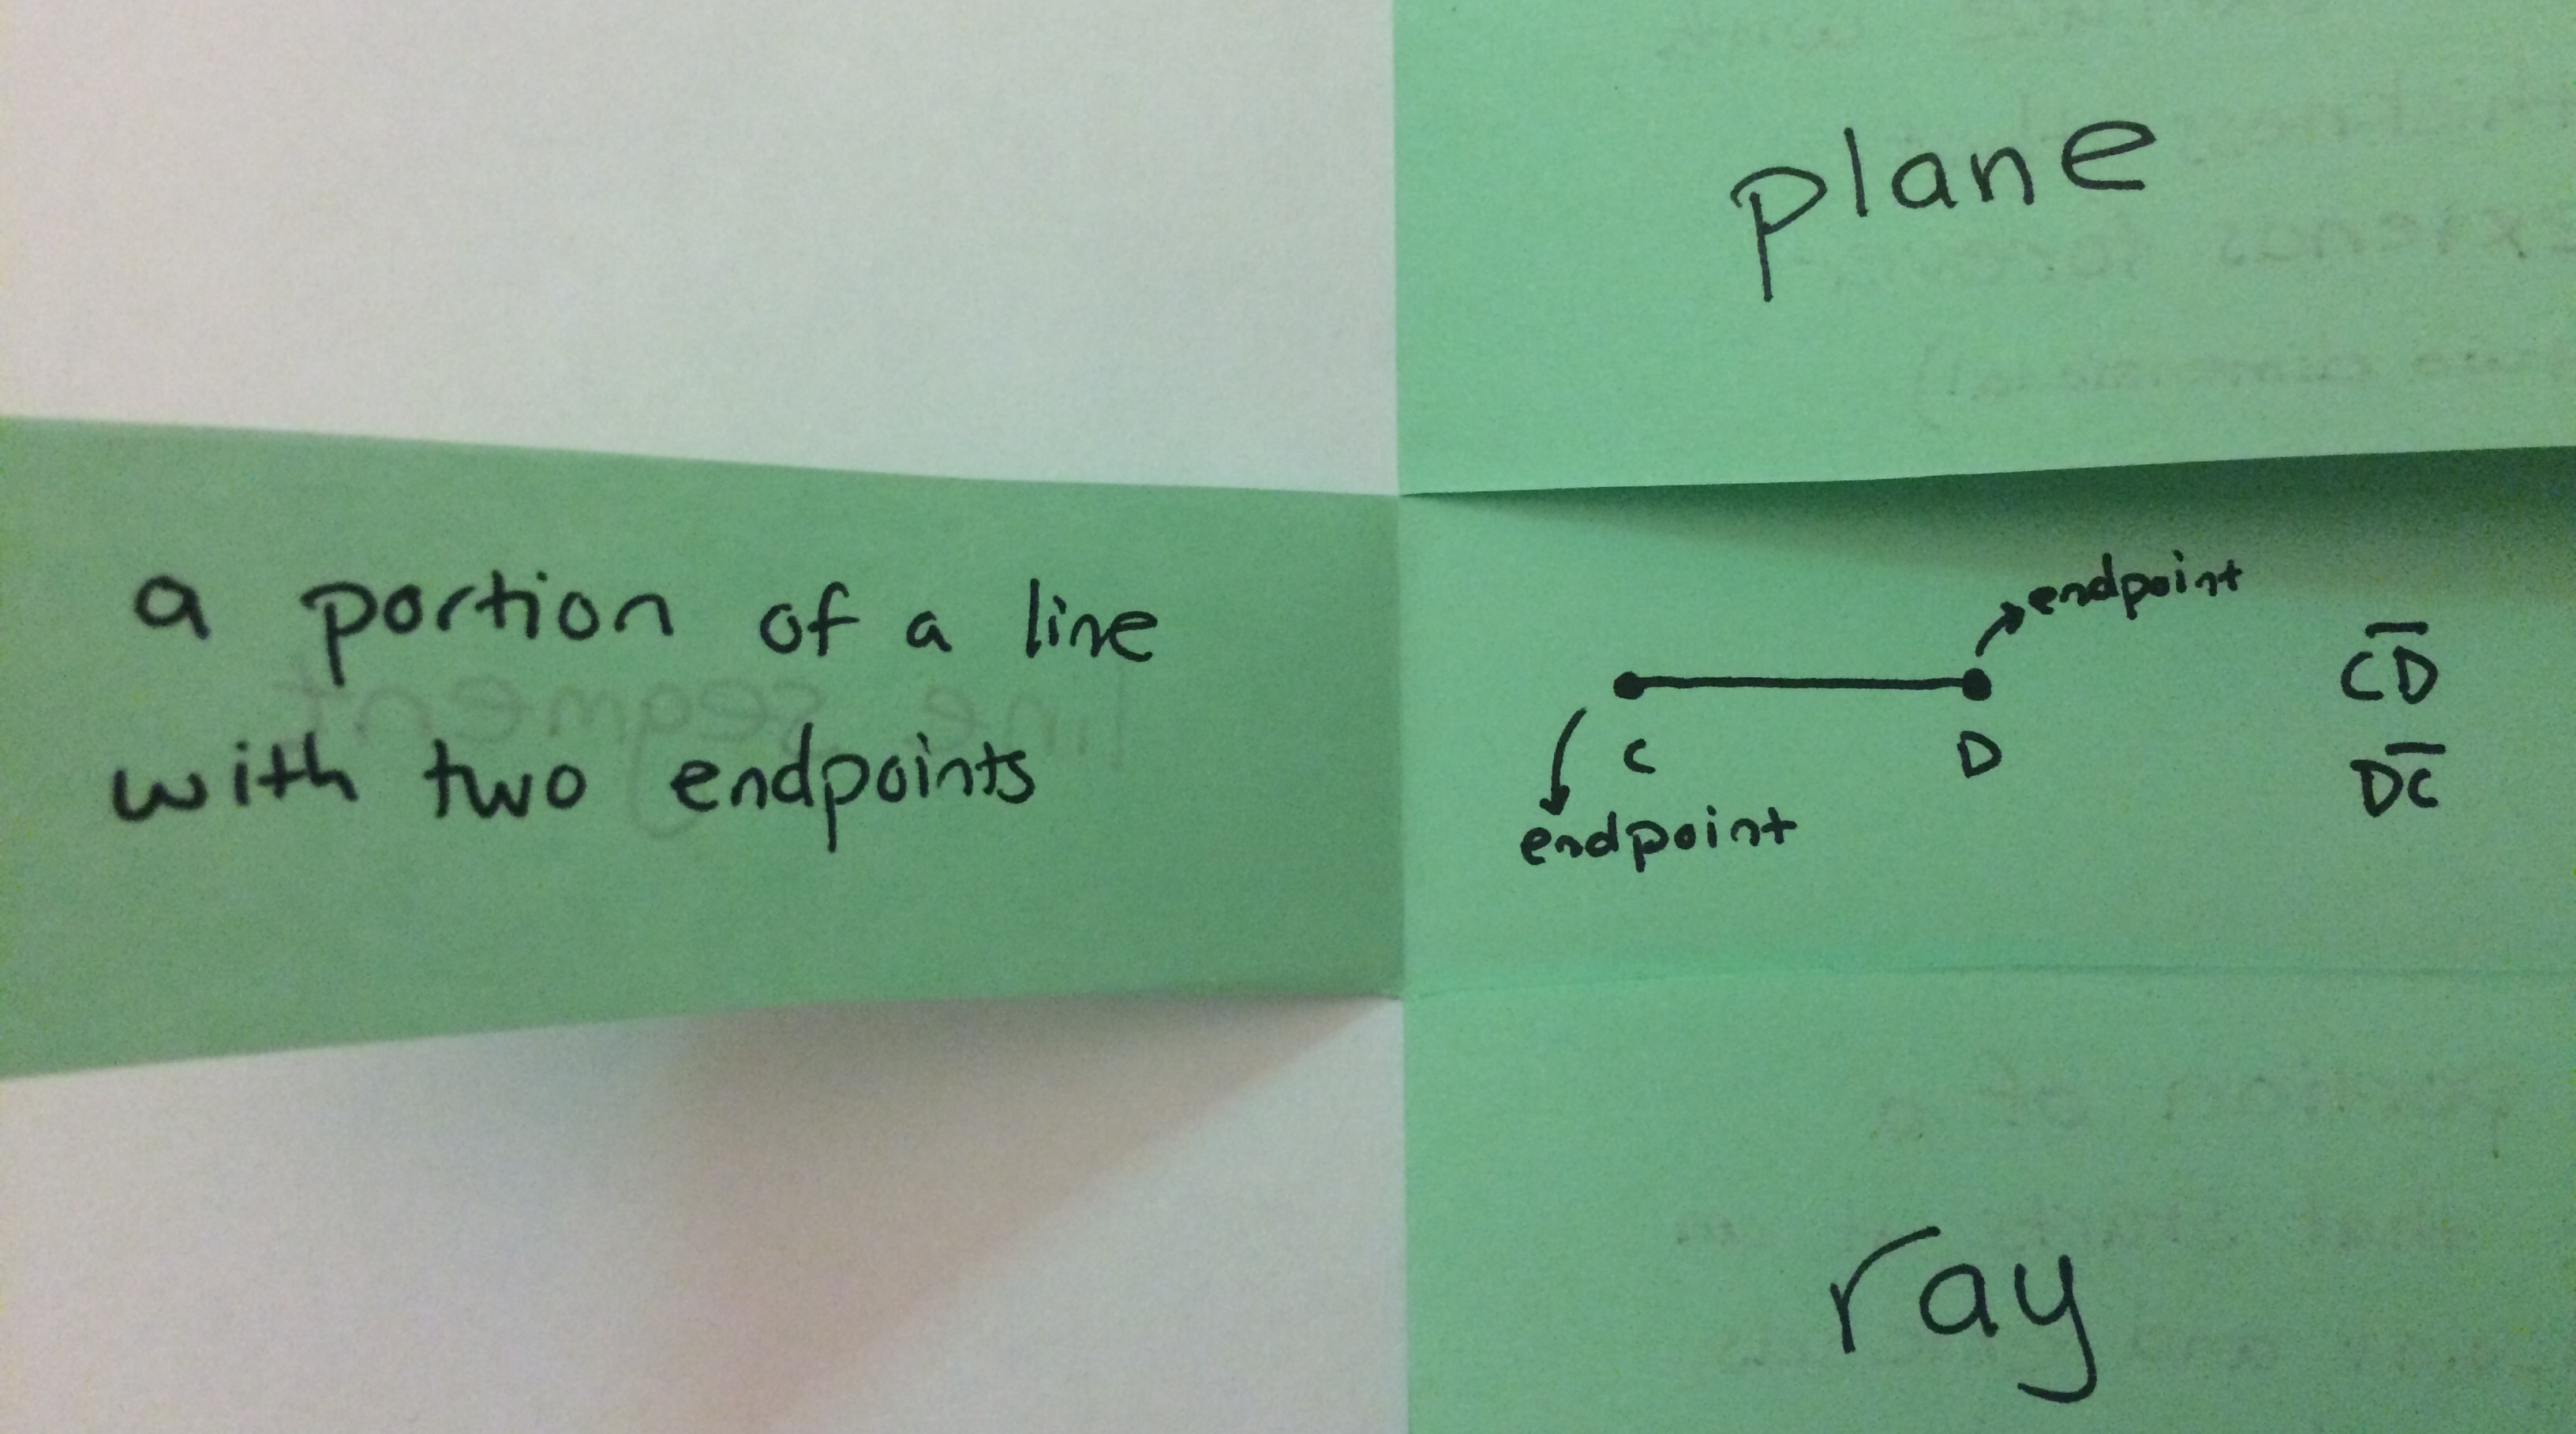 plane
a portion of a line
with two endpoints
line segment
endpoint
C D
endpoint
C̅D̅
D̅C̅
ray